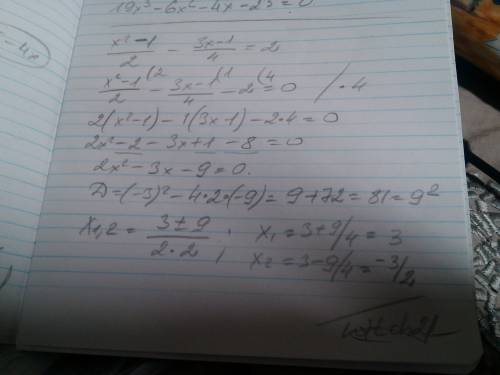 19x³-6x²-4x-25=0
-4x
x²-1/2 - 3x-1/4 = 2
x²-1/2 (2 - 3x-1/4 (1 - 2 (4 = 0 / ·4
2(x²-1)-1(3x-1)-2·4=0
2x²-2-3x+1-8=0
2x²-3x-9=0.
D=(-3)²-4·2·(-9)=9+72=81=9²
x1,2 = 3±9/2·2 ; x1=3+9/4=3
x2=3-9/4=-3/2